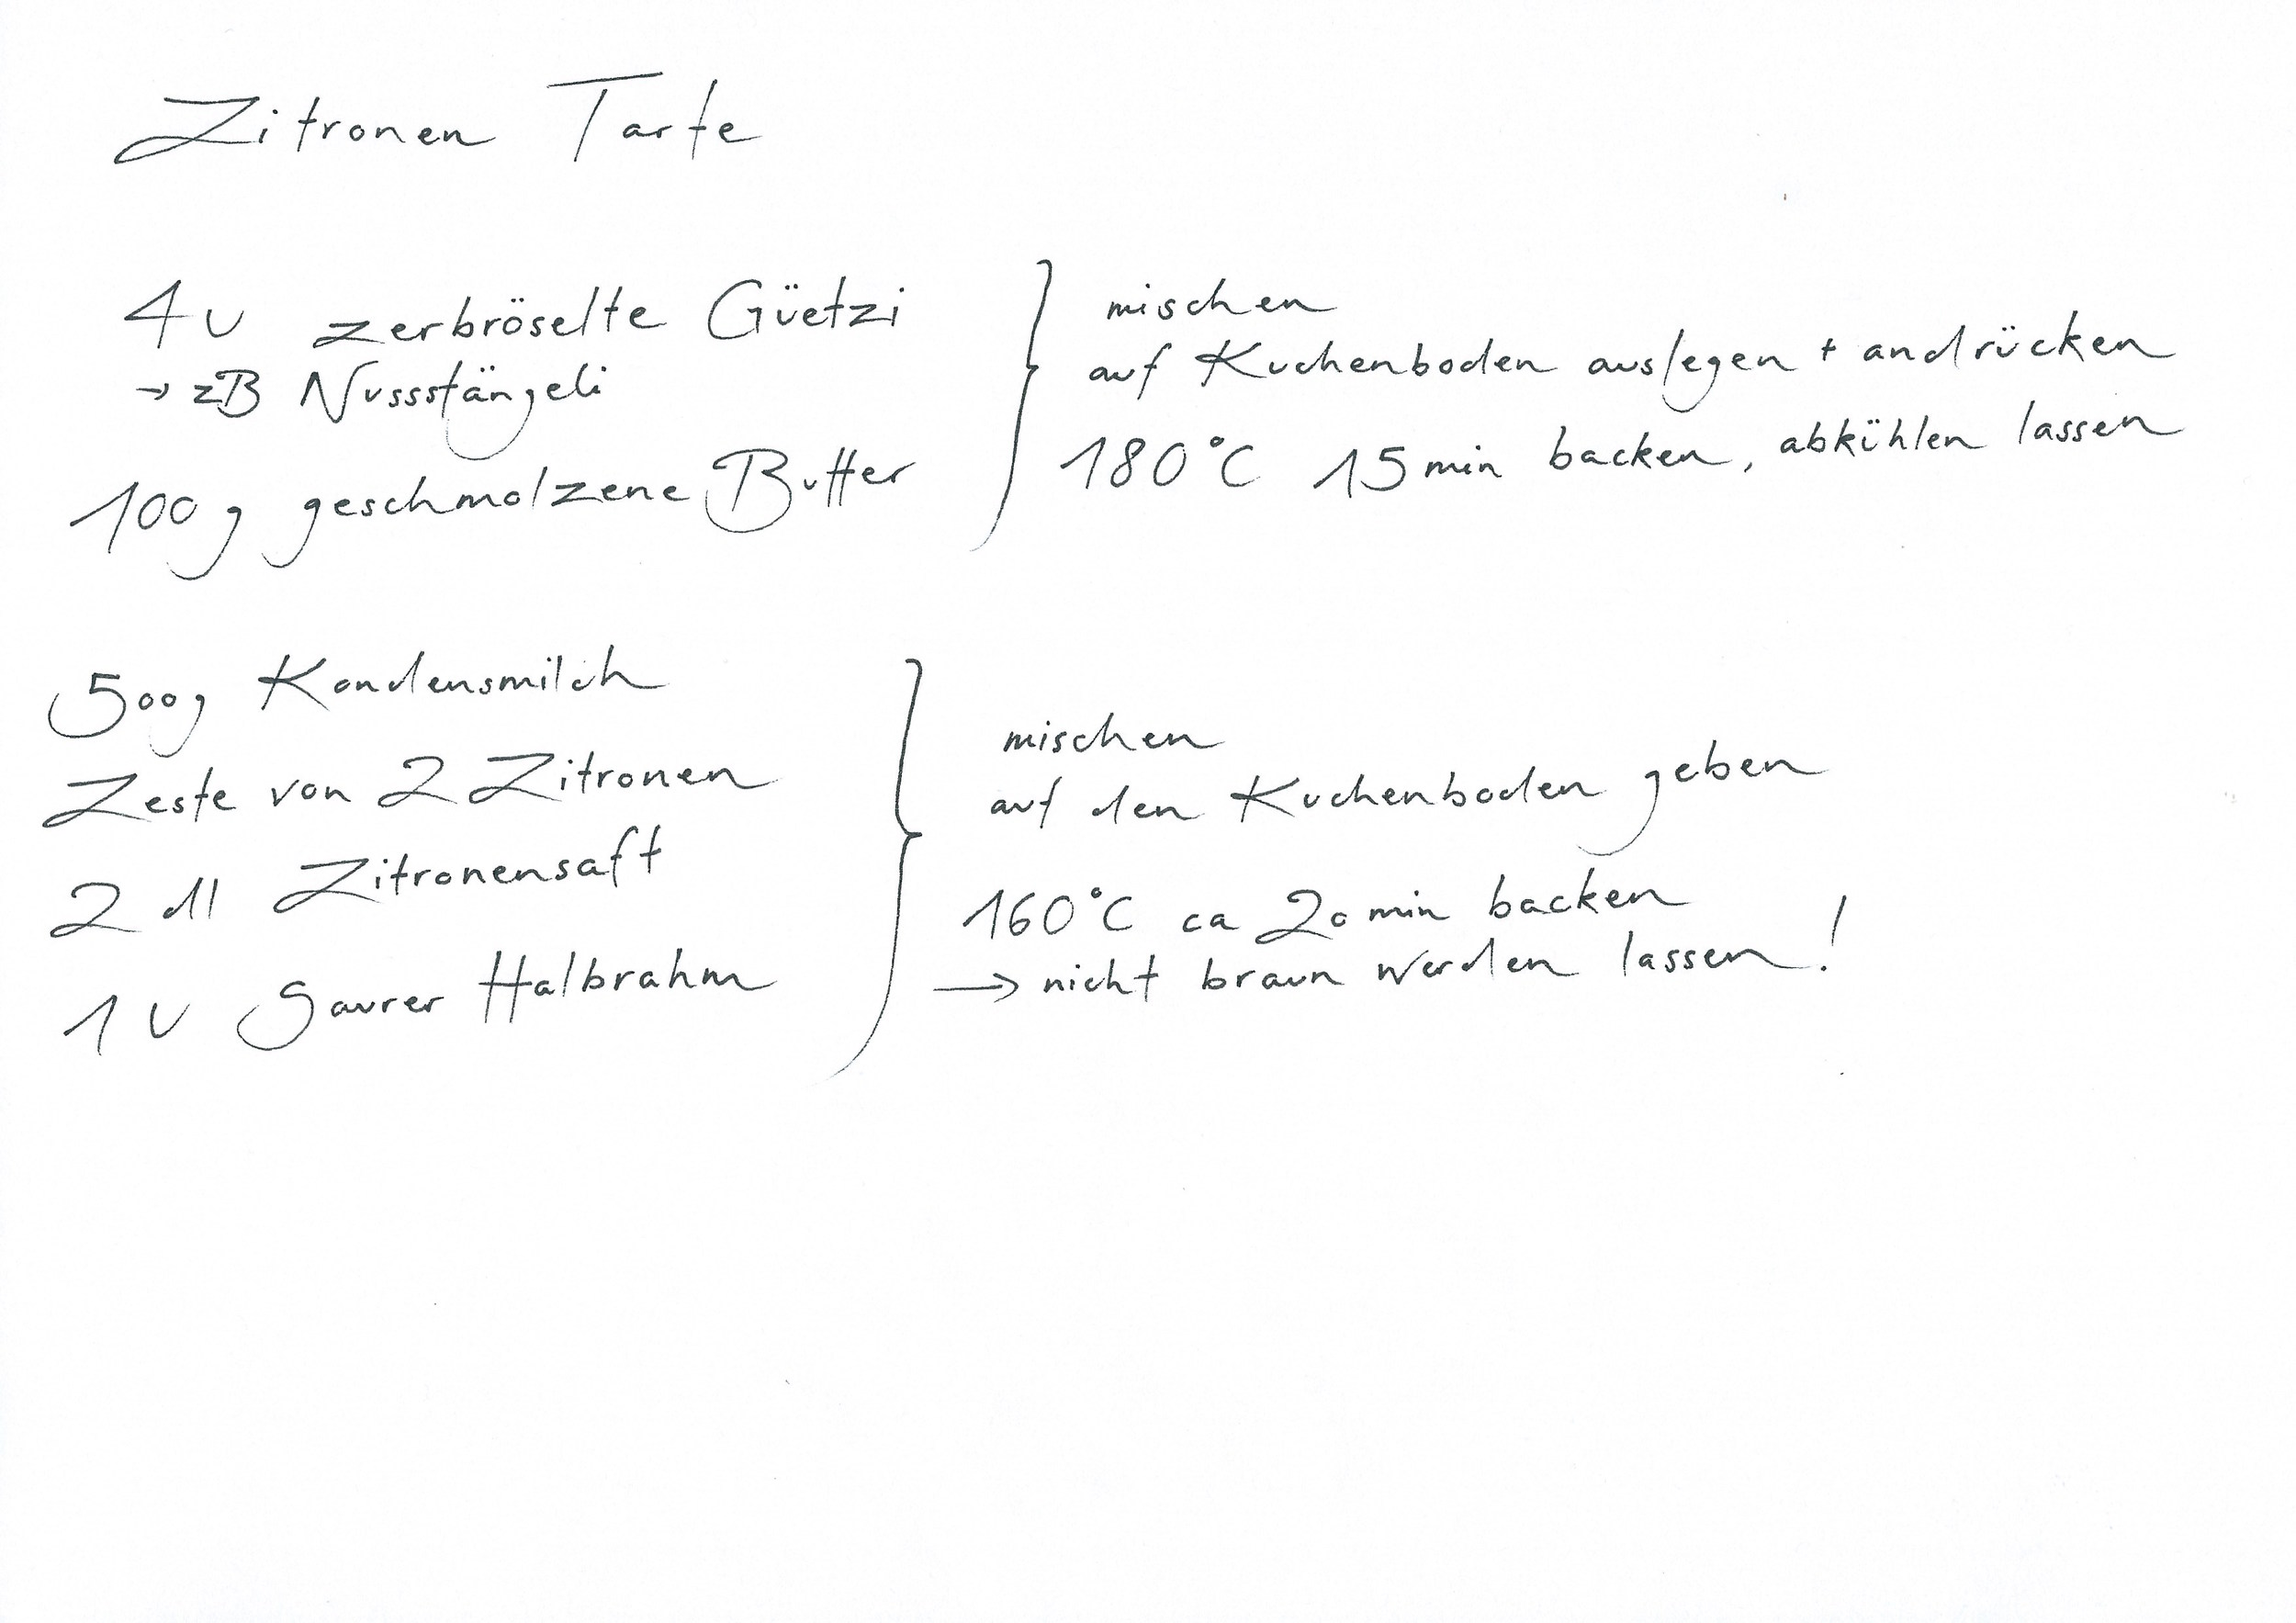 Zitronen Tarte
4 u zerbröselte Güetzi
→ zB Nussstängeli
100g geschmolzene Butter
mischen
auf Kuchenboden auslegen + andrücken
180°C 15 min backen, abkühlen lassen
500g Kondensmilch
Zeste von 2 Zitronen
2 dl Zitronensaft
1 u Saurer Halbrahm
mischen
auf den Kuchenboden geben
160°C ca 20 min backen
→ nicht braun werden lassen!